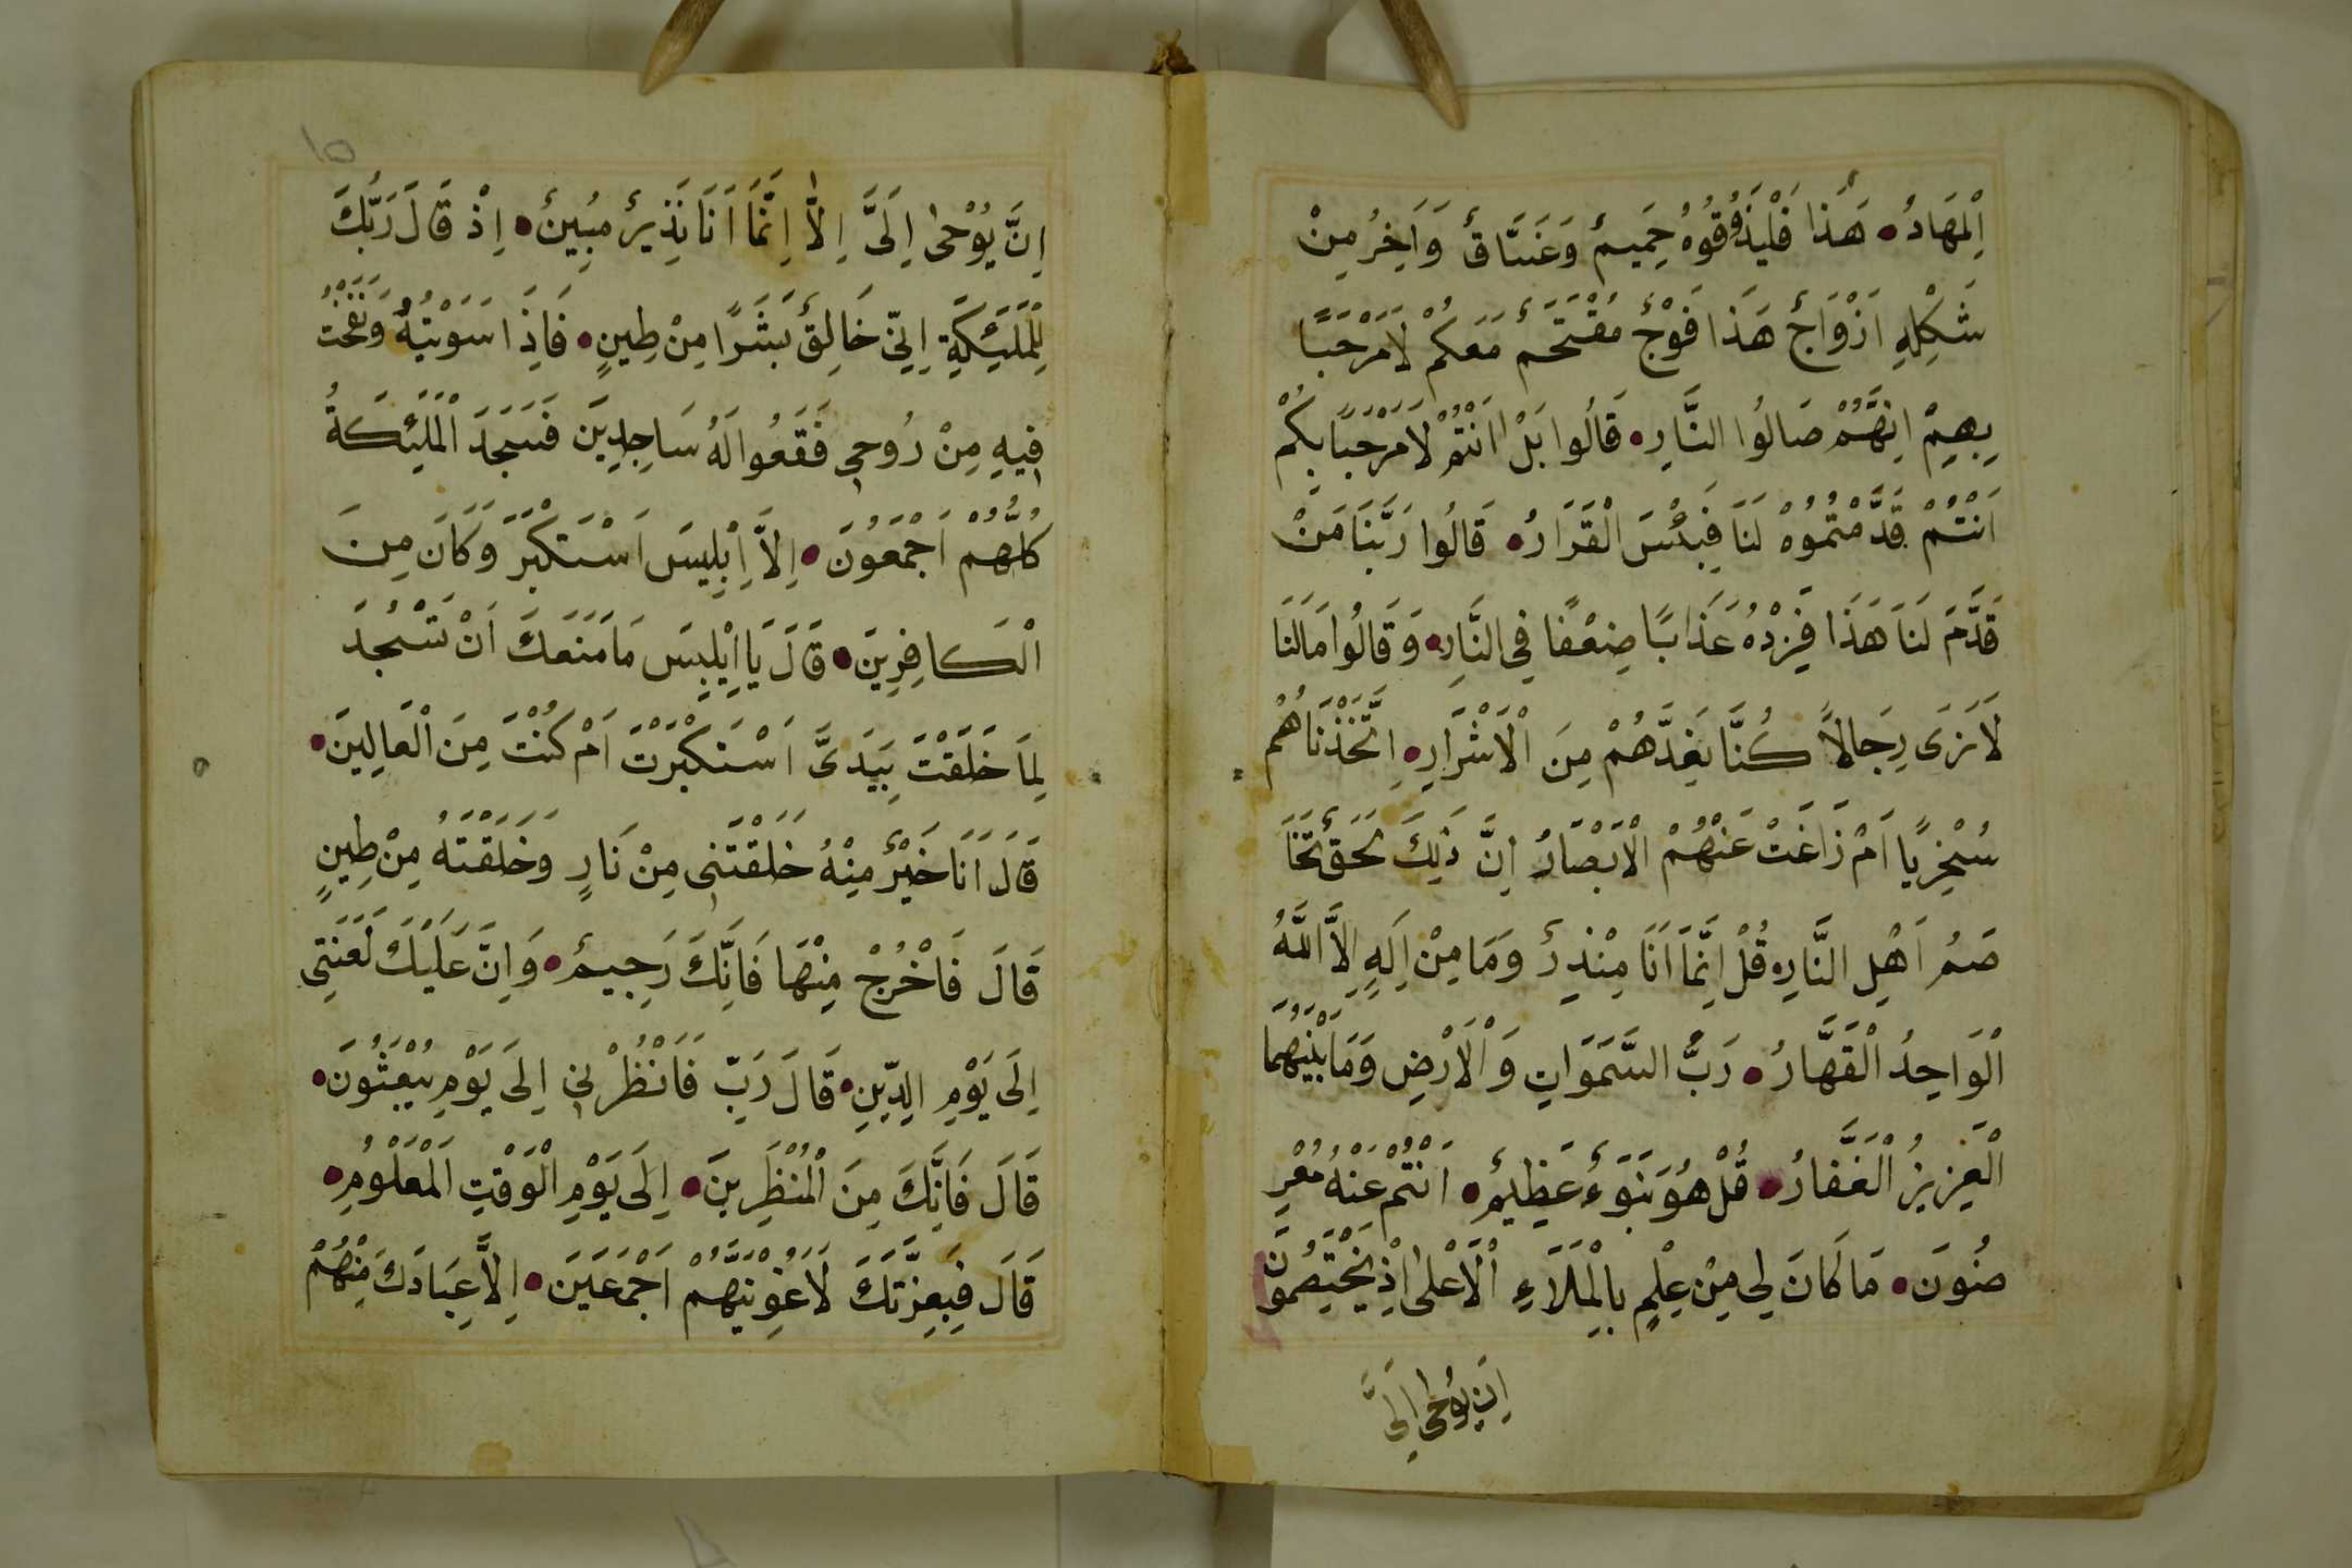 اِلْمَهَادُ ۞ هَذَا فَلْيَذُوقُوهُ حَمِيمٌ وَغَسَّاقٌ وَاَخِرُ مِنْ
شَكْلِهِ اَزْوَاجٌ هَذَا فَوْجٌ مُقْتَحَمٌ مَعَكُمْ لَامَرْحَبًا
بِهِمْ اِنَّهُمْ صَالُوا النَّارِ ۞ قَالُوا بَلْ اَنْتُمْ لَامَرْحَبًا بِكُمْ
اَنْتُمْ قَدَّمْتُمُوهْ لَنَا فَبِئْسَ الْقَرَارُ ۞ قَالُوا رَبَّنَا مَنْ
قَدَّمَ لَنَا هَذَا فَزِدْهُ عَذَابًا ضِعْفًا فِى النَّارِ ۞ وَقَالُوا مَالَنَا
لَانَرَى رِجَالاً كُنَّا نَعِدَّهُمْ مِنَ الْاَشْرَارِ ۞ اِتَّخَذْنَاهُمْ
سُخْرِيًا اَمْ زَاغَتْ عَنْهُمْ الْاَبْصَارُ اِنَّ ذَلِكَ لَحَقٌ تَخَا
صَمُ اَهْلِ النَّارِ ۞ قُلْ اِنَّمَا اَنَا مِنْذِرٌ وَمَا مِنْ اِلَهٍ اِلاَّ اللَّهُ
الْوَاحِدُ الْقَهَّارُ ۞ رَبُّ السَّمَوَاتِ وَالْاَرْضِ وَمَا بَيْنَهُمَا
الْعَزِيزُ الْغَفَّارُ ۞ قُلْ هُوَ نَبَوءٌ عَظِيمٌ ۞ اَنْتُمْ عَنْهُ مُعْرِ
ضُونَ ۞ مَا كَانَ لِى مِنْ عِلْمٍ بِالْمَلَاءِ الْاَعْلَى اِذْ يَخْتَصِمُونَ
اِنَ يُوحَى اِلَىَّ
اِنَّ يُوْحَى اِلَىَّ اِلاَّ اِنَّمَا اَنَا نَذِيرٌ مُبِينٌ ۞ اِذْ قَالَ رَبُّكَ
لِلْمَلَئِكَةِ اِنِّى خَالِقٌ بَشَرًا مِنْ طِينٍ ۞ فَاِذَا سَوَيْتُهُ وَنَفَخْتُ
فِيهِ مِنْ رُوحِى فَقَعُوا لَهُ سَاجِدِينَ فَسَجَدَ الْمَلَئِكَةُ
كُلُّهُمْ اَجْمَعُونَ ۞ اِلاَّ اِبْلِيسَ اَسْتَكْبَرَ وَكَانَ مِنَ
الْكَافِرِينَ ۞ قَالَ يَا اِبْلِيسَ مَا مَنَعَكَ اَنْ تَسْجُدَ
لِمَا خَلَقْتَ بِيَدَىَّ اَسْتَكْبَرْتَ اَمْ كُنْتَ مِنَ الْعَالِينَ ۞
قَالَ اَنَا خَيْرٌ مِنْهُ خَلَقْتَنِى مِنْ نَارٍ وَخَلَقْتَهُ مِنْ طِينٍ
قَالَ فَاخْرُجْ مِنْهَا فَاِنَّكَ رَجِيمٌ ۞ وَاِنَّ عَلَيْكَ لَعْنَتِى
اِلَى يَوْمِ الدِّينِ ۞ قَالَ رَبِّ فَانْظُرْنِى اِلَى يَوْمِ يُبْعَثُونَ ۞
قَالَ فَاِنَّكَ مِنَ الْمُنْظَرِينَ ۞ اِلَى يَوْمِ الْوَقْتِ الْمَعْلُومِ ۞
قَالَ فَبِعِزَّتِكَ لَاَغْوِيَنَّهُمْ اَجْمَعَيَنَ ۞ اِلاَّ عِبَادَكَ مِنْهُمْ